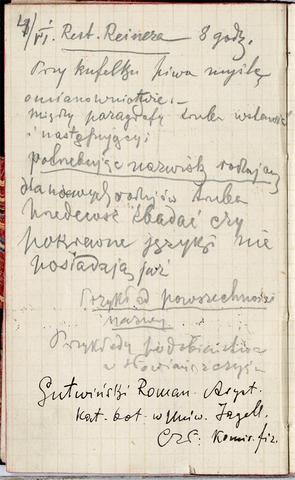 4/VI. Rest. Reinera 8 godz.
Przy kufelku piwa myślę
o mianownictwie. –
między paragrafy trzeba wstawić
i następujący:
potrzebując nazwisk rodzajowych
dla nowych rodzajów trzeba
zbadać czy
pokrewne języki nie
posiadają już
Przykład powszechności
nazwy
Przykłady podobieństwa
w słowiańszczyźnie
Gutwiński Roman. Asyst.
kat. bot. w Uniw. Jagell.
Czł. Komis. fiz.